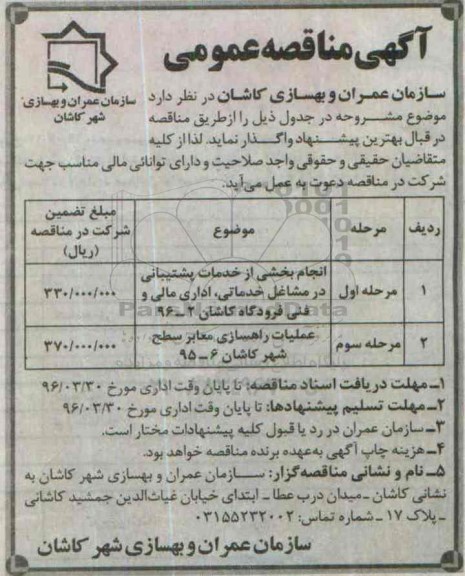 آگهی مناقصه عمومی
سازمان عمران و بهسازی
شهر کاشان
سازمان عمران و بهسازی کاشان در نظر دارد
موضوع مشروحه در جدول ذیل را ازطریق مناقصه
در قبال بهترین پیشنهاد واگذار نماید. لذا از کلیه
متقاضیان حقیقی و حقوقی واجد صلاحیت و دارای توانائی مالی مناسب جهت
شرکت در مناقصه دعوت به عمل می‌آید.
ردیف مرحله موضوع مبلغ تضمین شرکت در مناقصه (ریال)
۱ مرحله اول انجام بخشی از خدمات پشتیبانی در مشاغل خدماتی، اداری مالی و فنی فرودگاه کاشان ۲ـ۹۶ ۳۳۰/۰۰۰/۰۰۰
۲ مرحله سوم عملیات راهسازی معابر سطح شهر کاشان ۶ـ۹۵ ۳۷۰/۰۰۰/۰۰۰
۱ـ مهلت دریافت اسناد مناقصه: تا پایان وقت اداری مورخ ۹۶/۰۳/۳۰
۲ـ مهلت تسلیم پیشنهادها: تا پایان وقت اداری مورخ ۹۶/۰۳/۳۰
۳ـ سازمان عمران در رد یا قبول کلیه پیشنهادات مختار است.
۴ـ هزینه چاپ آگهی به‌عهده برنده مناقصه خواهد بود.
۵ـ نام و نشانی مناقصه‌گزار: سازمان عمران و بهسازی شهر کاشان به
نشانی کاشان ـ میدان درب عطا ـ ابتدای خیابان غیاث‌الدین جمشید کاشانی
ـ پلاک ۱۷ ـ شماره تماس: ۰۳۱۵۵۲۳۲۰۰۲
سازمان عمران و بهسازی شهر کاشان